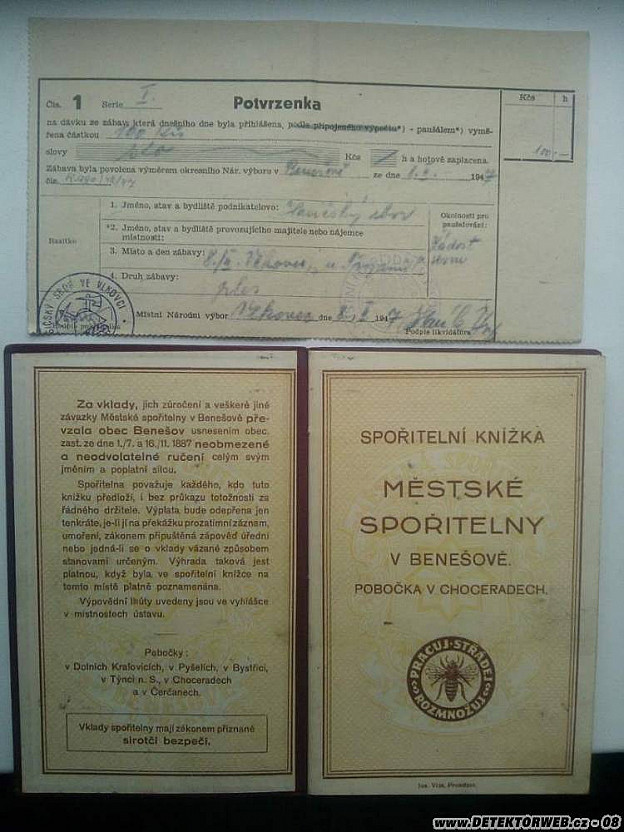 Čís. 1 Serie I. Potvrzenka Kčs h
na dávku ze zábav, která dnešního dne byla přihlášena, podle připojeného výpočtu*) - paušálem*) vymě-
řena částkou 100 Kčs
slovy sto Kčs h a hotově zaplacena. 100.-
Zábava byla povolena výměrem okresního Nár. výboru v ze dne 194
čís.
Razítko
1. Jméno, stav a bydliště podnikatelovo: Hasičský sbor
*2. Jméno, stav a bydliště provozujícího majitele nebo nájemce
místnosti:
3. Místo a den zábavy:
4. Druh zábavy:
ples
Okolnosti pro
paušalování:
Místní Národní výbor dne 1947
Podpis likvidátora
SBOR VE VLKOVCI
Za vklady, jich zúročení a veškeré jiné
závazky Městské spořitelny v Benešově pře-
vzala obec Benešov usnesením obec.
zast. ze dne 1./7. a 16./11. 1887 neobmezené
a neodvolatelné ručení celým svým
jměním a poplatní silou.
Spořitelna považuje každého, kdo tuto
knížku předloží, i bez průkazu totožnosti za
řádného držitele. Výplata bude odepřena jen
tenkráte, je-li jí na překážku prozatímní záznam,
umoření, zákonem připuštěná zápověď úřední
nebo jedná-li se o vklady vázané způsobem
stanovami určeným. Výhrada taková jest
platnou, když byla ve spořitelní knížce na
tomto místě platně poznamenána.
Výpovědní lhůty uvedeny jsou ve vyhlášce
v místnostech ústavu.
Pobočky:
v Dolních Kralovicích, v Pyšelích, v Bystřici,
v Týnci n. S., v Choceradech
a v Čerčanech.
Vklady spořitelny mají zákonem přiznané
sirotčí bezpečí.
SPOŘITELNÍ KNÍŽKA
MĚSTSKÉ
SPOŘITELNY
V BENEŠOVĚ.
POBOČKA V CHOCERADECH.
PRACUJ·STŘÁDEJ
ROZMNOŽUJ
WWW.DETEKTORWEB.cz - 08